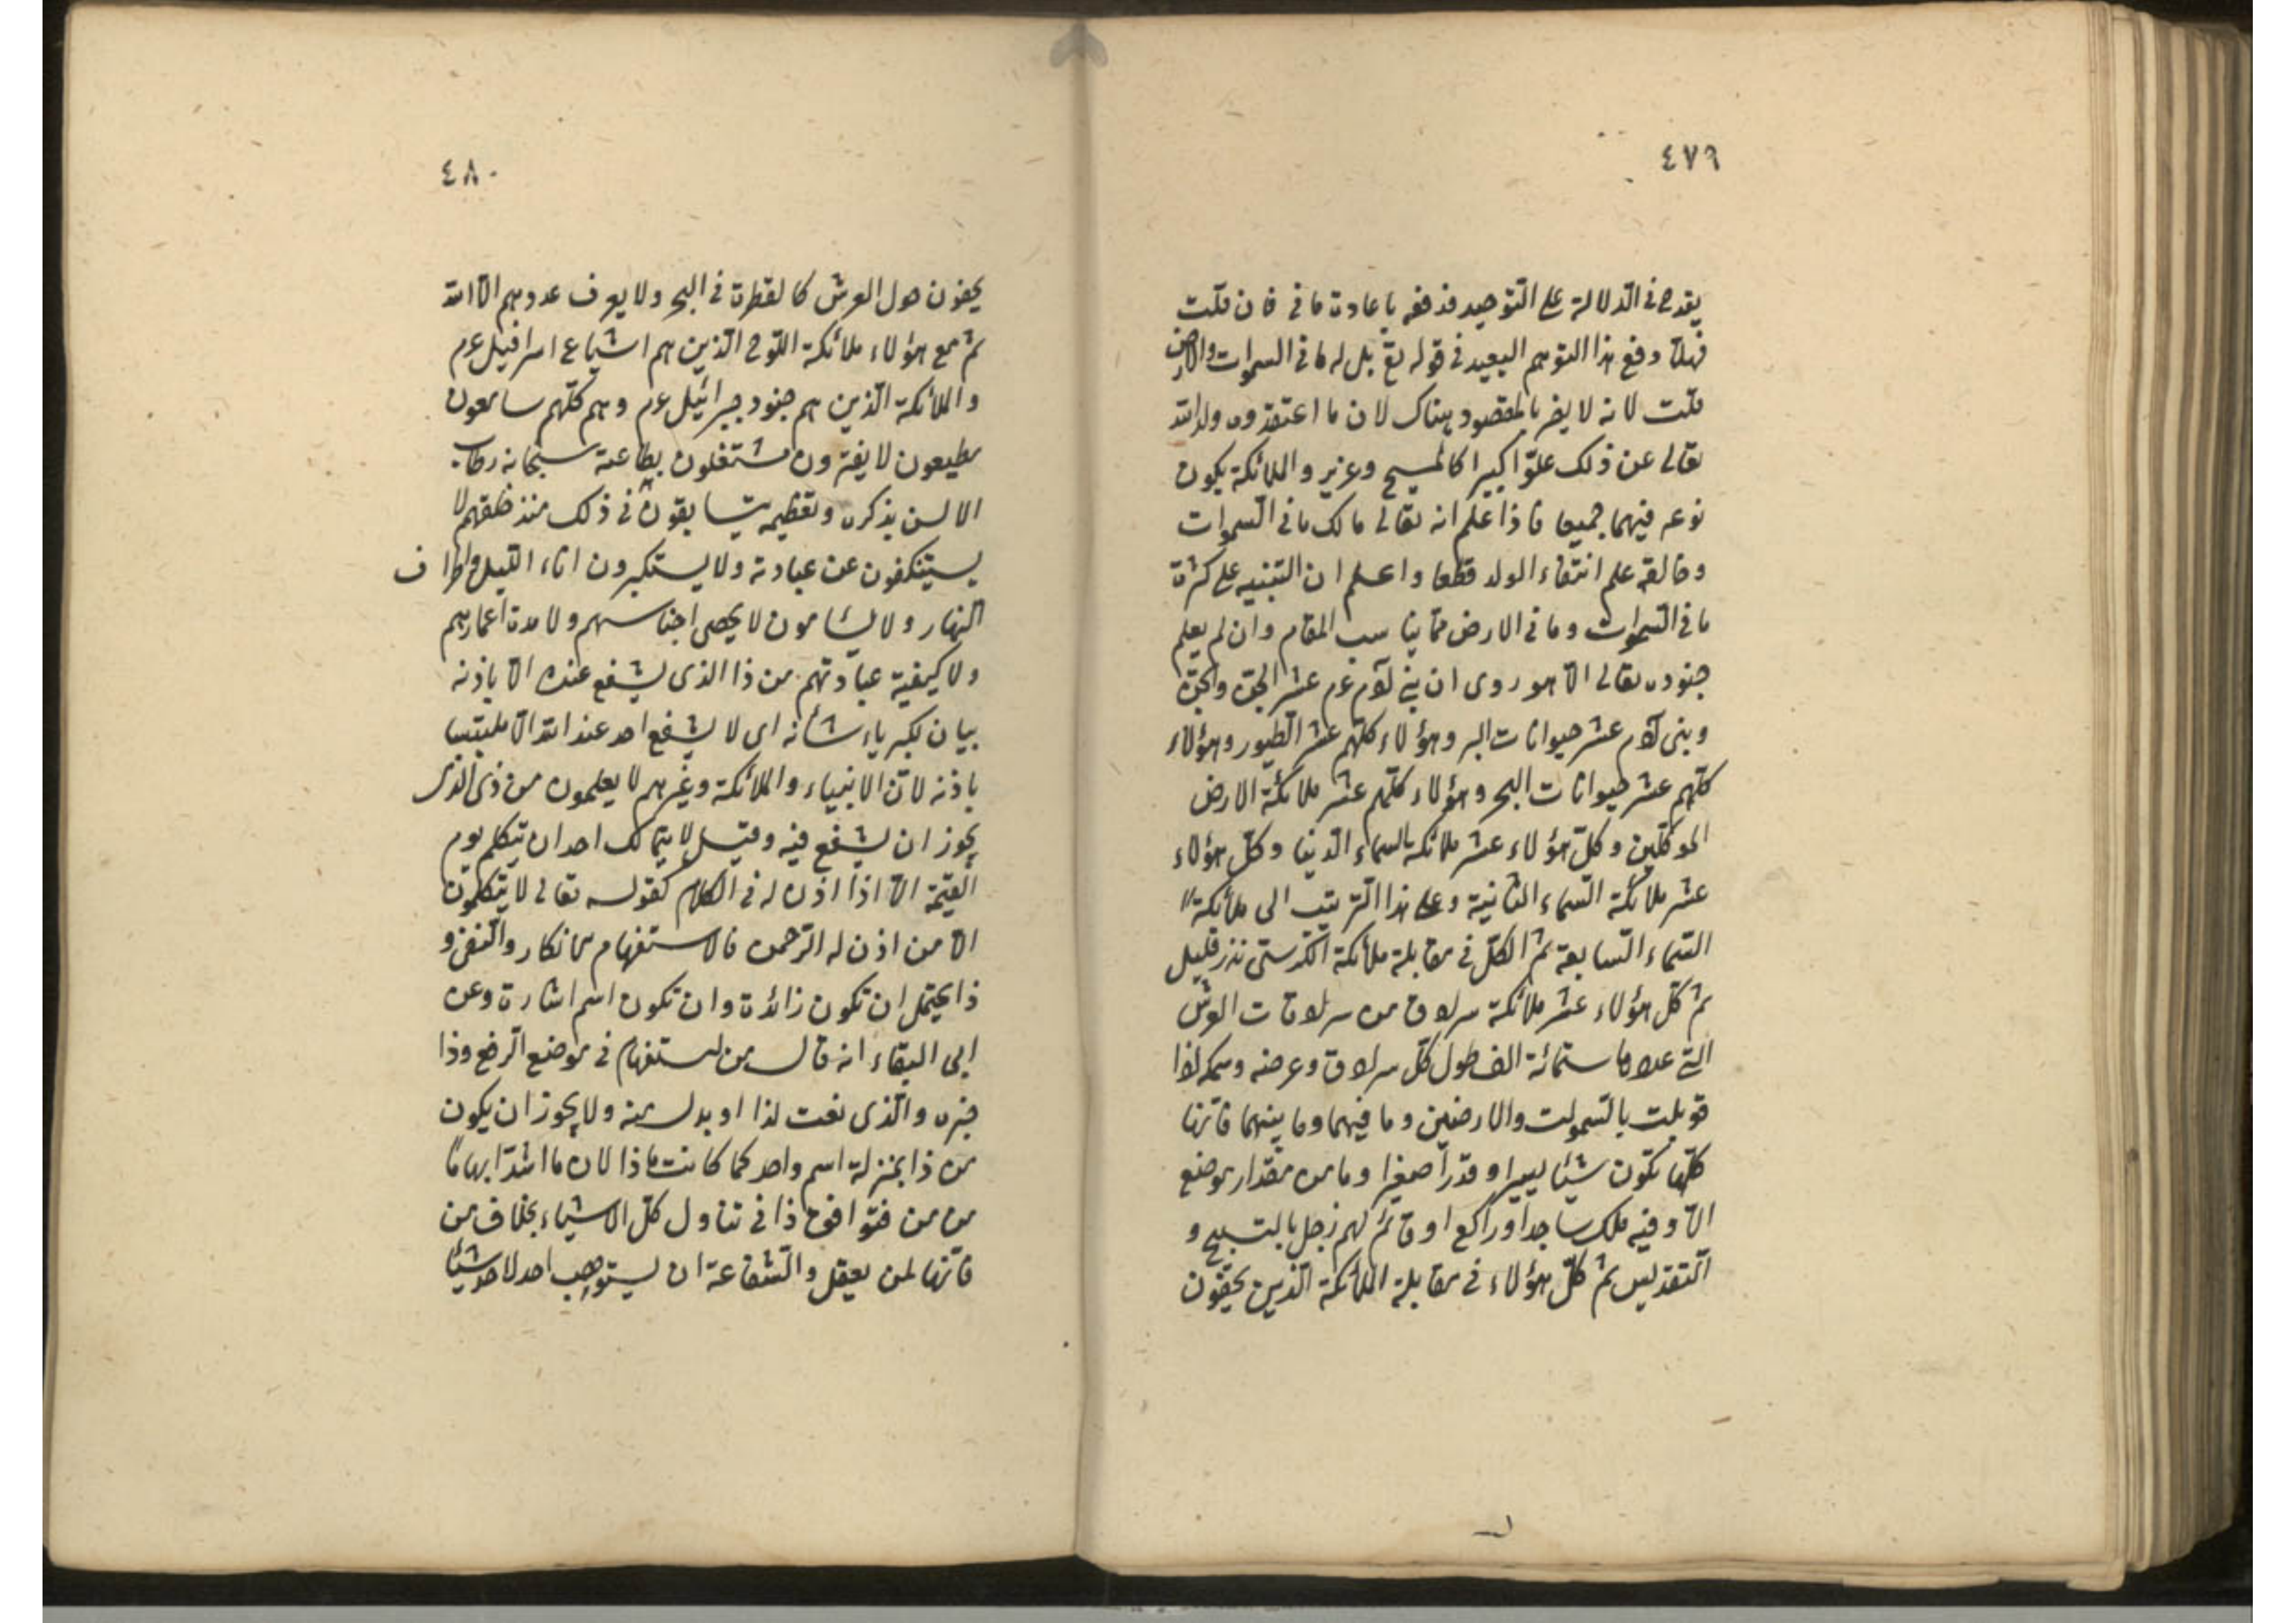 ٤٧٩
يقدح فى الدلالة على التوحيد فدفعه باعادة ما فى فان قلت
فهلّا دفع هذا التوهم البعيد فى قوله تع بل له ما فى السموات والارض
قلت لانه لا يضر بالمقصود هناك لان ما اعتقدوه ولد الله
تعالى عن ذلك علوّا كبيرا كالمسيح وعزير والملائكة يكون
نوعه فيهما جميعا فاذا علم انه تعالى مالك ما فى السموات
وخالقه علم انتفاء الولد قطعا واعلم ان التنبيه على كثرة
ما فى السموات وما فى الارض ممّا يناسب المقام وان لم يعلم
جنوده تعالى الّا هو روى ان بنى آدم عم عشر الجنّ والجنّ
وبنى آدم عشر حيوانات البر وهؤلاء كلّهم عشر الطيور وهؤلاء
كلّهم عشر حيوانات البحر وهؤلاء كلّهم عشر ملائكة الارض
الموكّلين وكلّ هؤلاء عشر ملائكة السماء الدنيا وكلّ هؤلاء
عشر ملائكة السماء الثانية وعلى هذا الترتيب الى ملائكة
السماء السابعة ثم الكلّ فى مقابلة ملائكة الكرسى نزر قليل
ثم كلّ هؤلاء عشر ملائكة سرادق من سرادقات العرش
التى عددها ستمائة الف طول كلّ سرادق وعرضه وسمكه اذا
قوبلت بالسموات والارضين وما فيهما وما بينهما فانّها
كلّها تكون شيئا يسيرا وقدرا صغيرا وما من مقدار موضع
الّا وفيه ملك ساجد اوراكع او قائم لهم زجل بالتسبيح و
التقديس ثم كلّ هؤلاء فى مقابلة الملائكة الذين يحفون
٤٨٠
يحفون حول العرش كالقطرة فى البحر ولا يعرف عددهم الّا الله
ثم مع هؤلاء ملائكة اللوح الّذين هم اشياع اسرافيل عم
والملائكة الّذين هم جنود جبرائيل عم وهم كلّهم سامعون
مطيعون لا يفترون مشتغلون بطاعته سبحانه رطاب
الالسن بذكره وتعظيمه يتسابقون فى ذلك منذ خلقهم لا
يستنكفون عن عبادته ولا يستكبرون اناء الليل واطراف
النهار ولا يسأمون لا يحصى اجناسهم ولا مدة اعمارهم
ولا كيفية عبادتهم من ذا الذى يشفع عنده الّا باذنه
بيان لكبرياء شأنه اى لا يشفع احد عند الله الّا ملتبسا
باذنه لانّ الانبياء والملائكة وغيرهم لا يعلمون من ذى الذى
يجوز ان يشفع فيه وقيل لا يتمالك احد ان يتكلم يوم
القيمة الّا اذا اذن له فى الكلام كقوله تعالى لا يتكلمون
الّا من اذن له الرّحمن فالاستفهام للانكار والنفى و
ذا يحتمل ان تكون زائدة وان تكون اسم اشارة وعن
ابى البقاء انه قال من استفهام فى موضع الرفع وذا
خبره والّذى نعت لذا او بدل منه ولا يجوز ان يكون
من ذا بمنزلة اسم واحد كما كانت ماذا لان ما اشدّ ابهاما
من من فتوافق ذا فى تناول كلّ الاشياء بخلاف من
فانّها لمن يعقل والشفاعة ان يستوهب احد لاحد شيئا